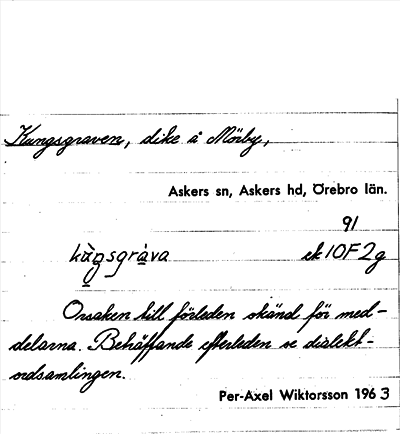 Kungsgraven, dike å Mörby,
Askers sn, Askers hd, Örebro län.
91
kùŋsgràva ek 10F2g
Orsaken till förleden okänd för med-
delarna. Behäffande efterleden se dialekt-
ordsamlingen.
Per-Axel Wiktorsson 1963